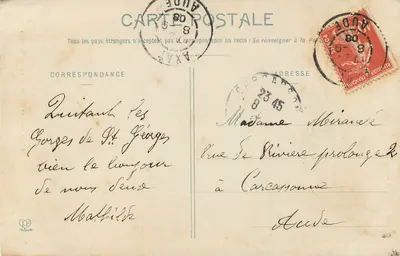 CARTE POSTALE
Tous les pays étrangers n'acceptent pas la correspondance au recto (Se renseigner à la Poste)
CORRESPONDANCE
ADRESSE
AXAT
8
08
AUDE
CARCASSONNE
23 45
8
8
08
AUDE
Quittant les
Gorges de St Georges
bien le bonjour
de nous deux
Mathilde
Madame Mirandé
Rue de Rivière prolongé 2
à Carcassonne
Aude